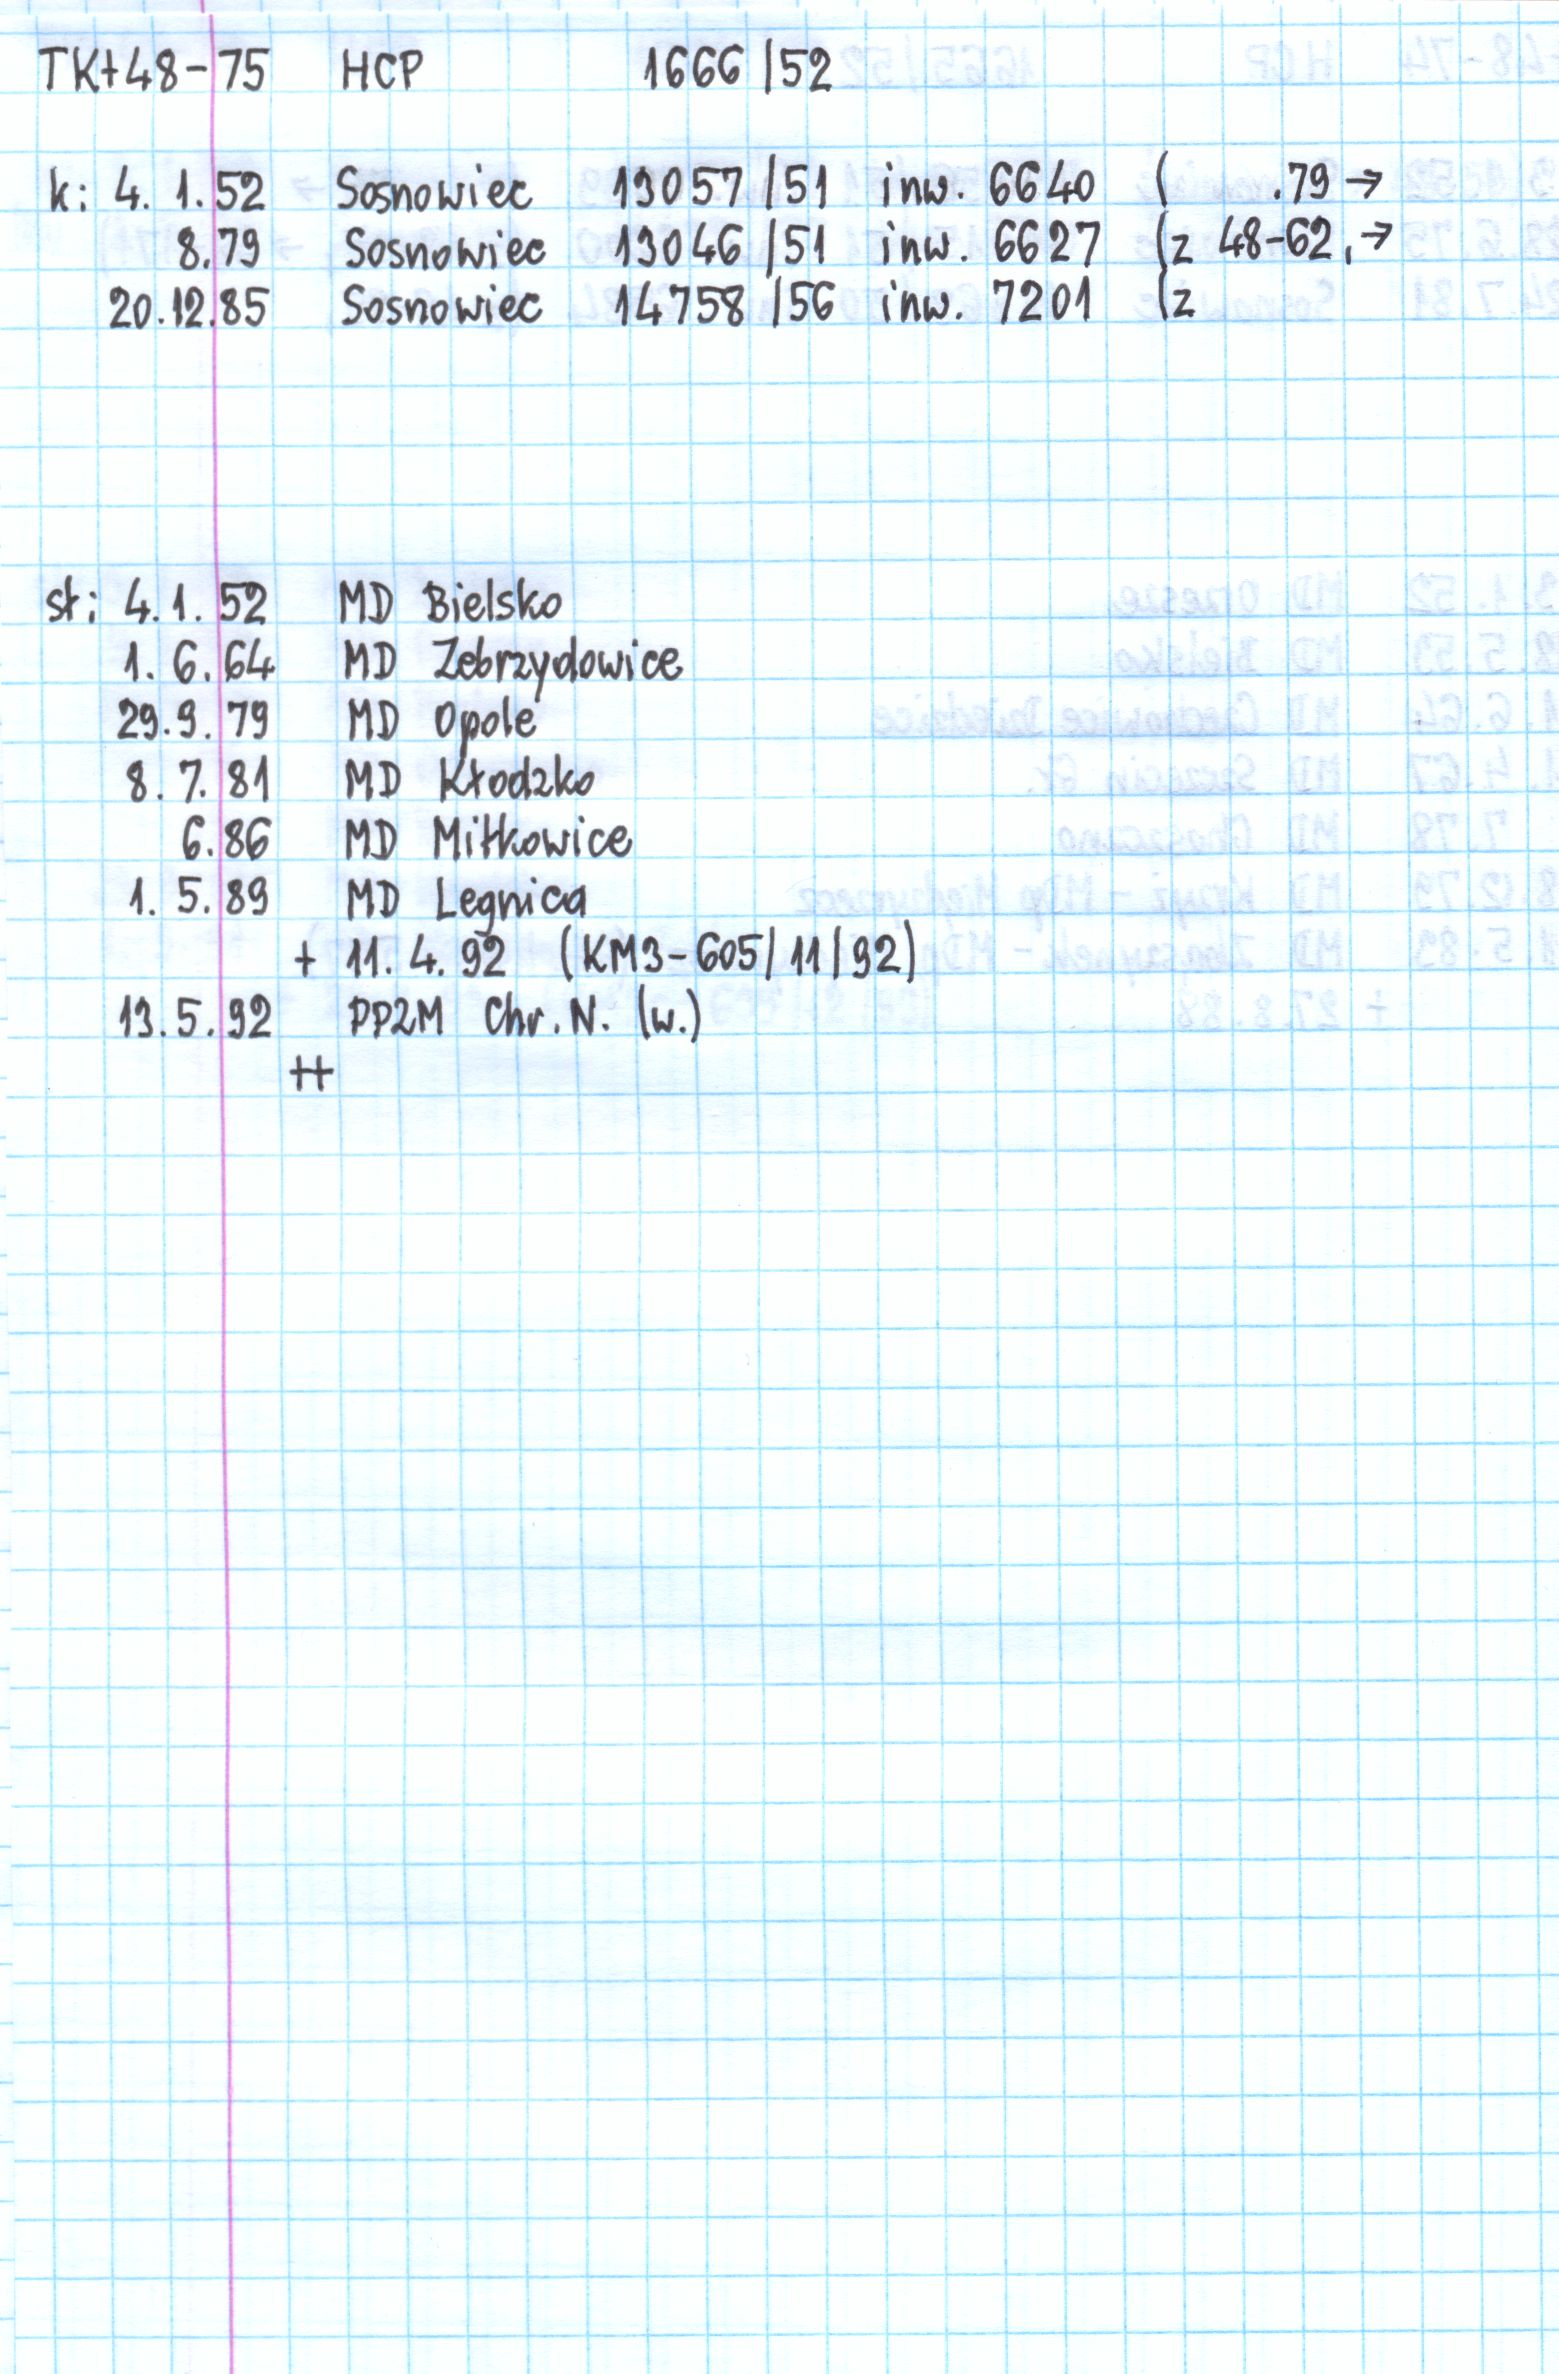 TKt48-75 HCP 1666/52
k: 4.1.52 Sosnowiec 13057/51 inw. 6640 ( .79 →
8.79 Sosnowiec 13046/51 inw. 6627 (z 48-62, →
20.12.85 Sosnowiec 14758/56 inw. 7201 (z
st: 4.1.52 MD Bielsko
1.6.64 MD Zebrzydowice
29.9.79 MD Opole
8.7.81 MD Kłodzko
6.86 MD Miłkowice
1.5.89 MD Legnica
+ 11.4.92 (KM3-605/11/92)
13.5.92 PPZM Chr. N. (w.)
++